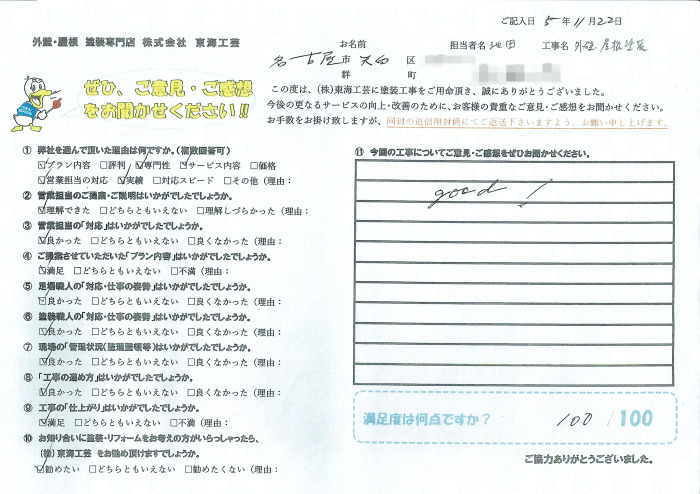 ご記入日 5年11月22日
外壁・屋根 塗装専門店 株式会社 東海工芸
お名前
担当者名 池田
工事名 外壁 屋根塗装
名古屋市 天白 区
群 町
ぜひ、ご意見・ご感想
をお聞かせください!!
この度は、(株)東海工芸に塗装工事をご用命頂き、誠にありがとうございました。
今後の更なるサービスの向上・改善のために、お客様の貴重なご意見・ご感想をお聞かせください。
お手数をお掛け致しますが、同封の返信用封筒にてご返送下さいますよう、お願い申し上げます。
① 弊社を選んで頂いた理由は何ですか。(複数回答可)
☑プラン内容 ☐評判 ☑専門性 ☑サービス内容 ☐価格
☑営業担当の対応 ☑実績 ☐対応スピード ☐その他(理由:
② 営業担当のご提案・ご説明はいかがでしたでしょうか。
☑理解できた ☐どちらともいえない ☐理解しづらかった(理由:
③ 営業担当の「対応」はいかがでしたでしょうか。
☑良かった ☐どちらともいえない ☐良くなかった(理由:
④ ご提案させていただいた「プラン内容」はいかがでしたでしょうか。
☑満足 ☐どちらともいえない ☐不満(理由:
⑤ 足場職人の「対応・仕事の姿勢」はいかがでしたでしょうか。
☑良かった ☐どちらともいえない ☐良くなかった(理由:
⑥ 塗装職人の「対応・仕事の姿勢」はいかがでしたでしょうか。
☑良かった ☐どちらともいえない ☐良くなかった(理由:
⑦ 現場の「管理状況(整理整頓等)はいかがでしたでしょうか。
☑良かった ☐どちらともいえない ☐良くなかった(理由:
⑧ 「工事の進め方」はいかがでしたでしょうか。
☑良かった ☐どちらともいえない ☐良くなかった(理由:
⑨ 工事の「仕上がり」はいかがでしたでしょうか。
☑満足 ☐どちらともいえない ☐不満(理由:
⑩ お知り合いに塗装・リフォームをお考えの方がいらっしゃったら、
(株)東海工芸 をお勧め頂けますでしょうか。
☑勧めたい ☐どちらともいえない ☐勧めたくない(理由:
⑪ 今回の工事についてご意見・ご感想をぜひお聞かせください。
good!
満足度は何点ですか? 100/100
ご協力ありがとうございました。